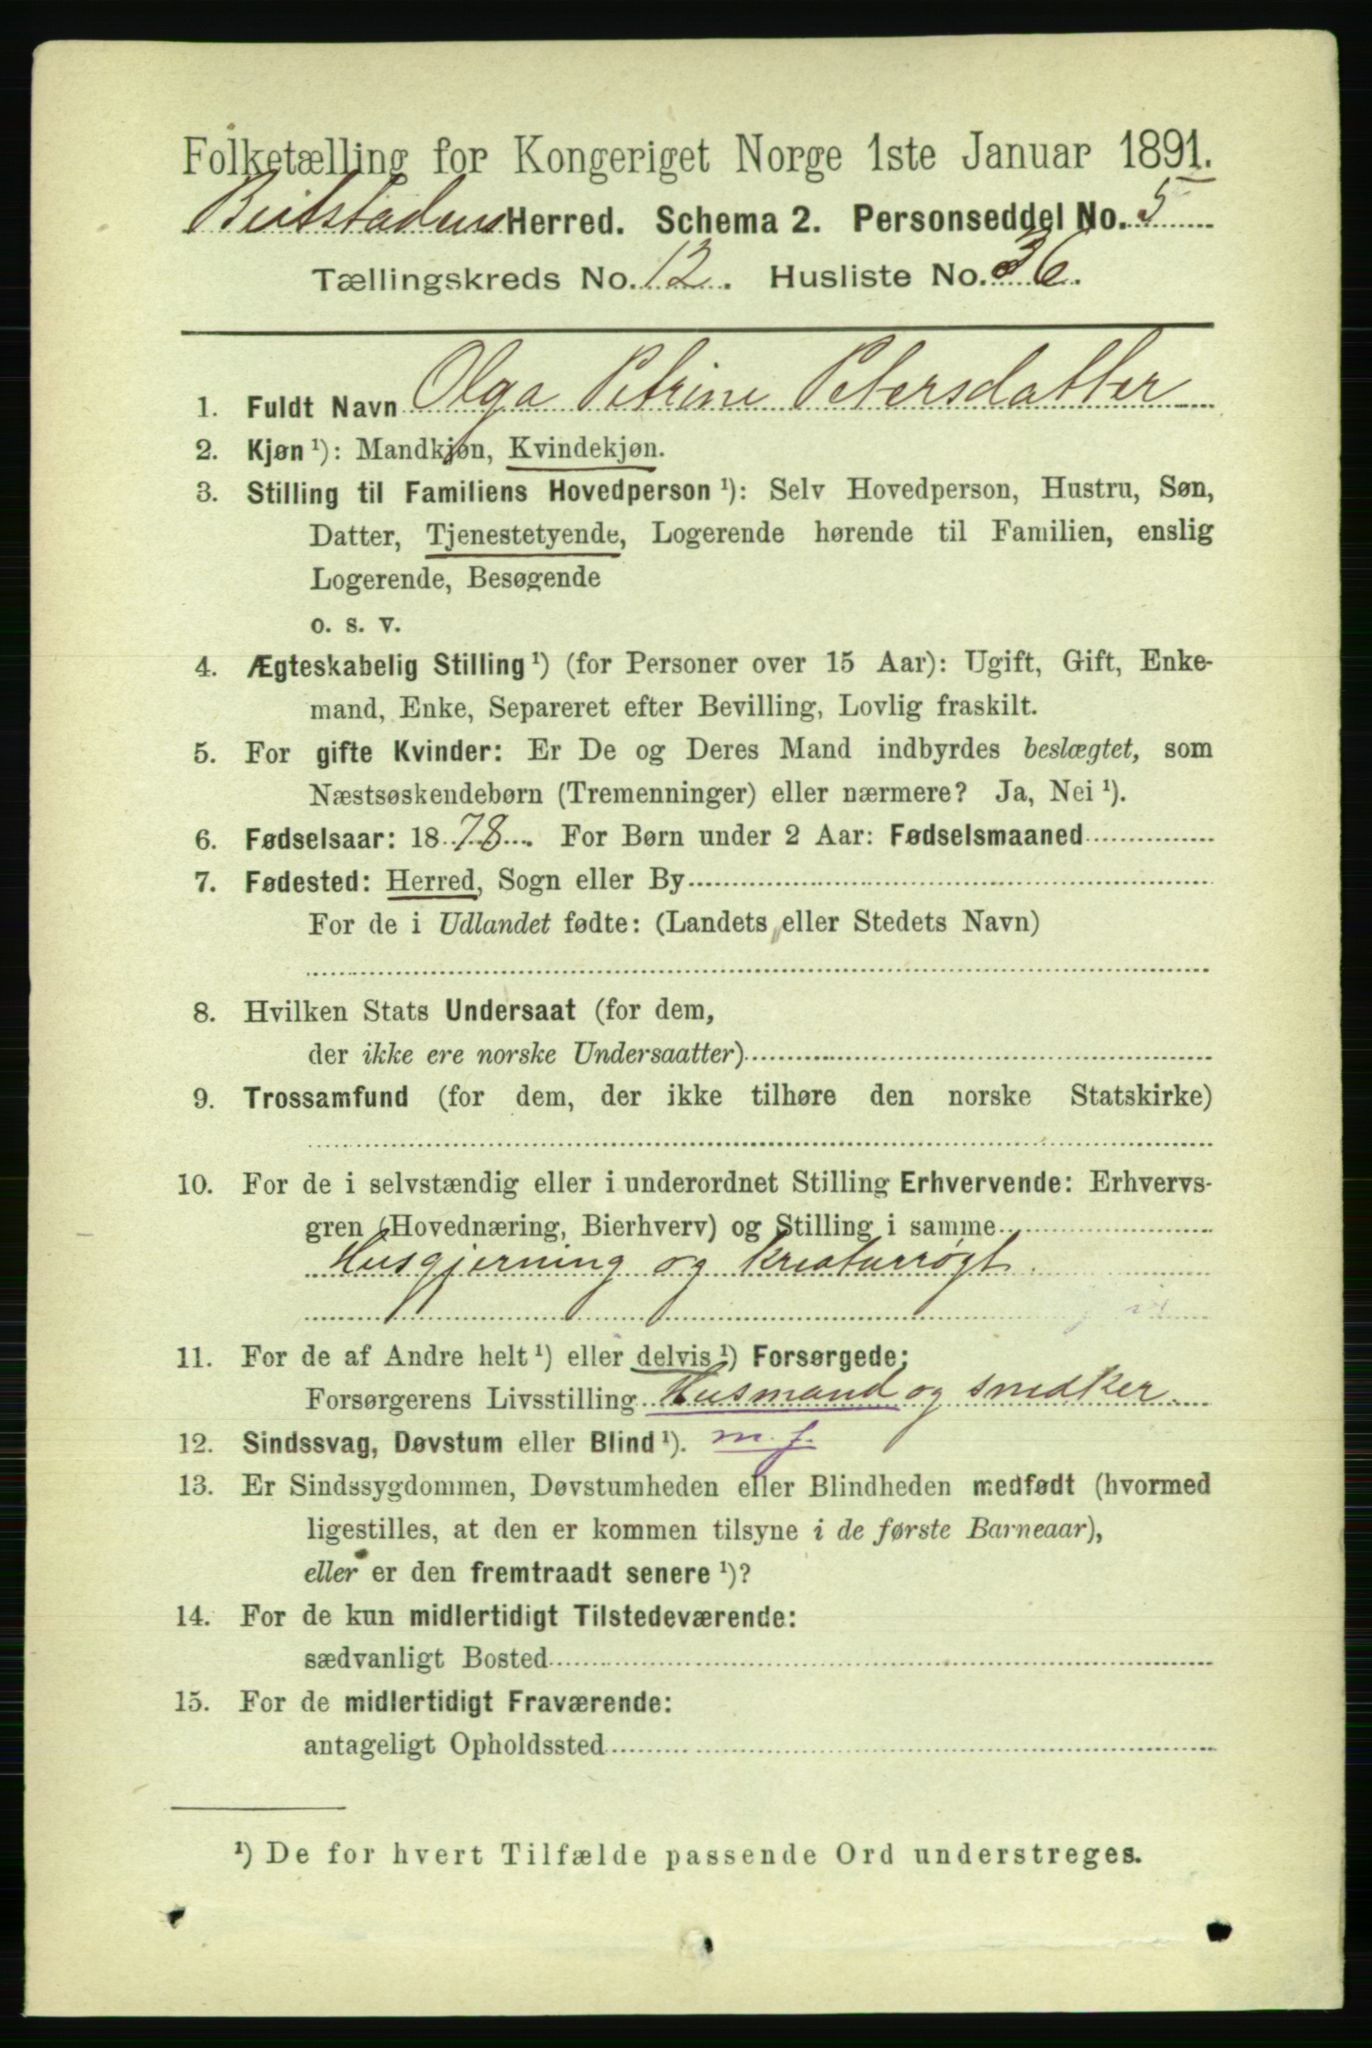 Folketælling for Kongeriget Norge 1ste Januar 1891.
Beitstadens Herred. Schema 2. Personseddel No. 5
Tællingskreds No. 12. Husliste No. 36.
1. Fuldt Navn Olga Petrine Petersdatter
2. Kjøn ¹): Mandkjøn, Kvindekjøn.
3. Stilling til Familiens Hovedperson ¹): Selv Hovedperson, Hustru, Søn,
Datter, Tjenestetyende, Logerende hørende til Familien, enslig
Logerende, Besøgende
o. s. v.
4. Ægteskabelig Stilling ¹) (for Personer over 15 Aar): Ugift, Gift, Enke-
mand, Enke, Separeret efter Bevilling, Lovlig fraskilt.
5. For gifte Kvinder: Er De og Deres Mand indbyrdes beslægtet, som
Næstsøskendebørn (Tremenninger) eller nærmere? Ja, Nei ¹).
6. Fødselsaar: 1878. For Børn under 2 Aar: Fødselsmaaned
7. Fødested: Herred, Sogn eller By
For de i Udlandet fødte: (Landets eller Stedets Navn)
8. Hvilken Stats Undersaat (for dem,
der ikke ere norske Undersaatter)
9. Trossamfund (for dem, der ikke tilhøre den norske Statskirke)
10. For de i selvstændig eller i underordnet Stilling Erhvervende: Erhvervs-
gren (Hovednæring, Bierhverv) og Stilling i samme
Husgjerning og Kreaturrøgt.
11. For de af Andre helt ¹) eller delvis ¹) Forsørgede:
Forsørgerens Livsstilling Husmand og snedker.
12. Sindssvag, Døvstum eller Blind ¹). m. j.
13. Er Sindssygdommen, Døvstumheden eller Blindheden medfødt (hvormed
ligestilles, at den er kommen tilsyne i de første Barneaar),
eller er den fremtraadt senere ¹)?
14. For de kun midlertidigt Tilstedeværende:
sædvanligt Bosted
15. For de midlertidigt Fraværende:
antageligt Opholdssted
¹) De for hvert Tilfælde passende Ord understreges.